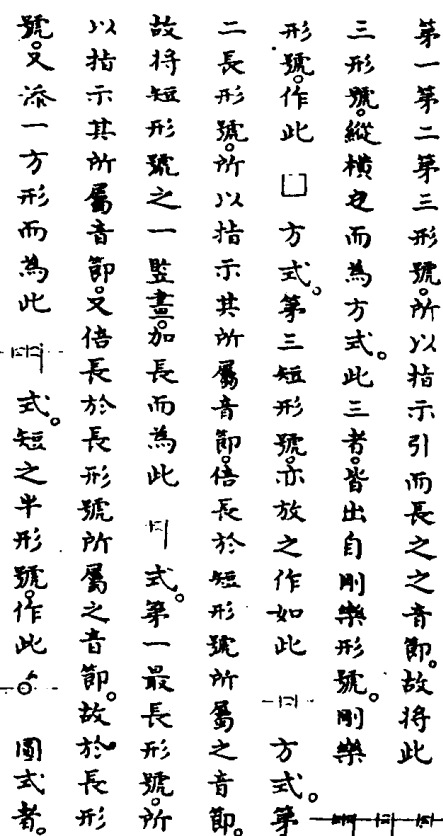 第一第二第三形號。所以指示引而長之之音節。故將此
三形號。縱橫也而為方式。此三者。皆出自剛樂形號。剛樂
形號。作此方式。第三短形號。亦放之作如此方式。第
二長形號。所以指示其所屬音節。倍長於短形號所屬之音節。
故將短形號之一豎畫。加長而為此式。第一最長形號。所
以指示其所屬音節。又倍長於長形號所屬之音節。故於長形
號。又添一方形而為此式。短之半形號。作此圖式者。